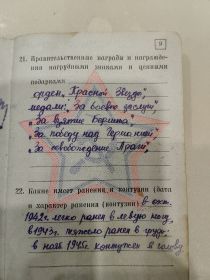 9
21. Правительственные награды и награждения нагрудными знаками и ценными
подарками
орден „Красной Звезды“
медали: „За боевые заслуги“
„За взятие Берлина“
„За победу над Германией“
„За освобождение Праги“
22. Какие имеет ранения и контузии (дата
и характер ранения (контузии) в окт.
1942г. легко ранен в левую ногу,
в 1943г. тяжело ранен в грудь
в 1945г. контужен в голову